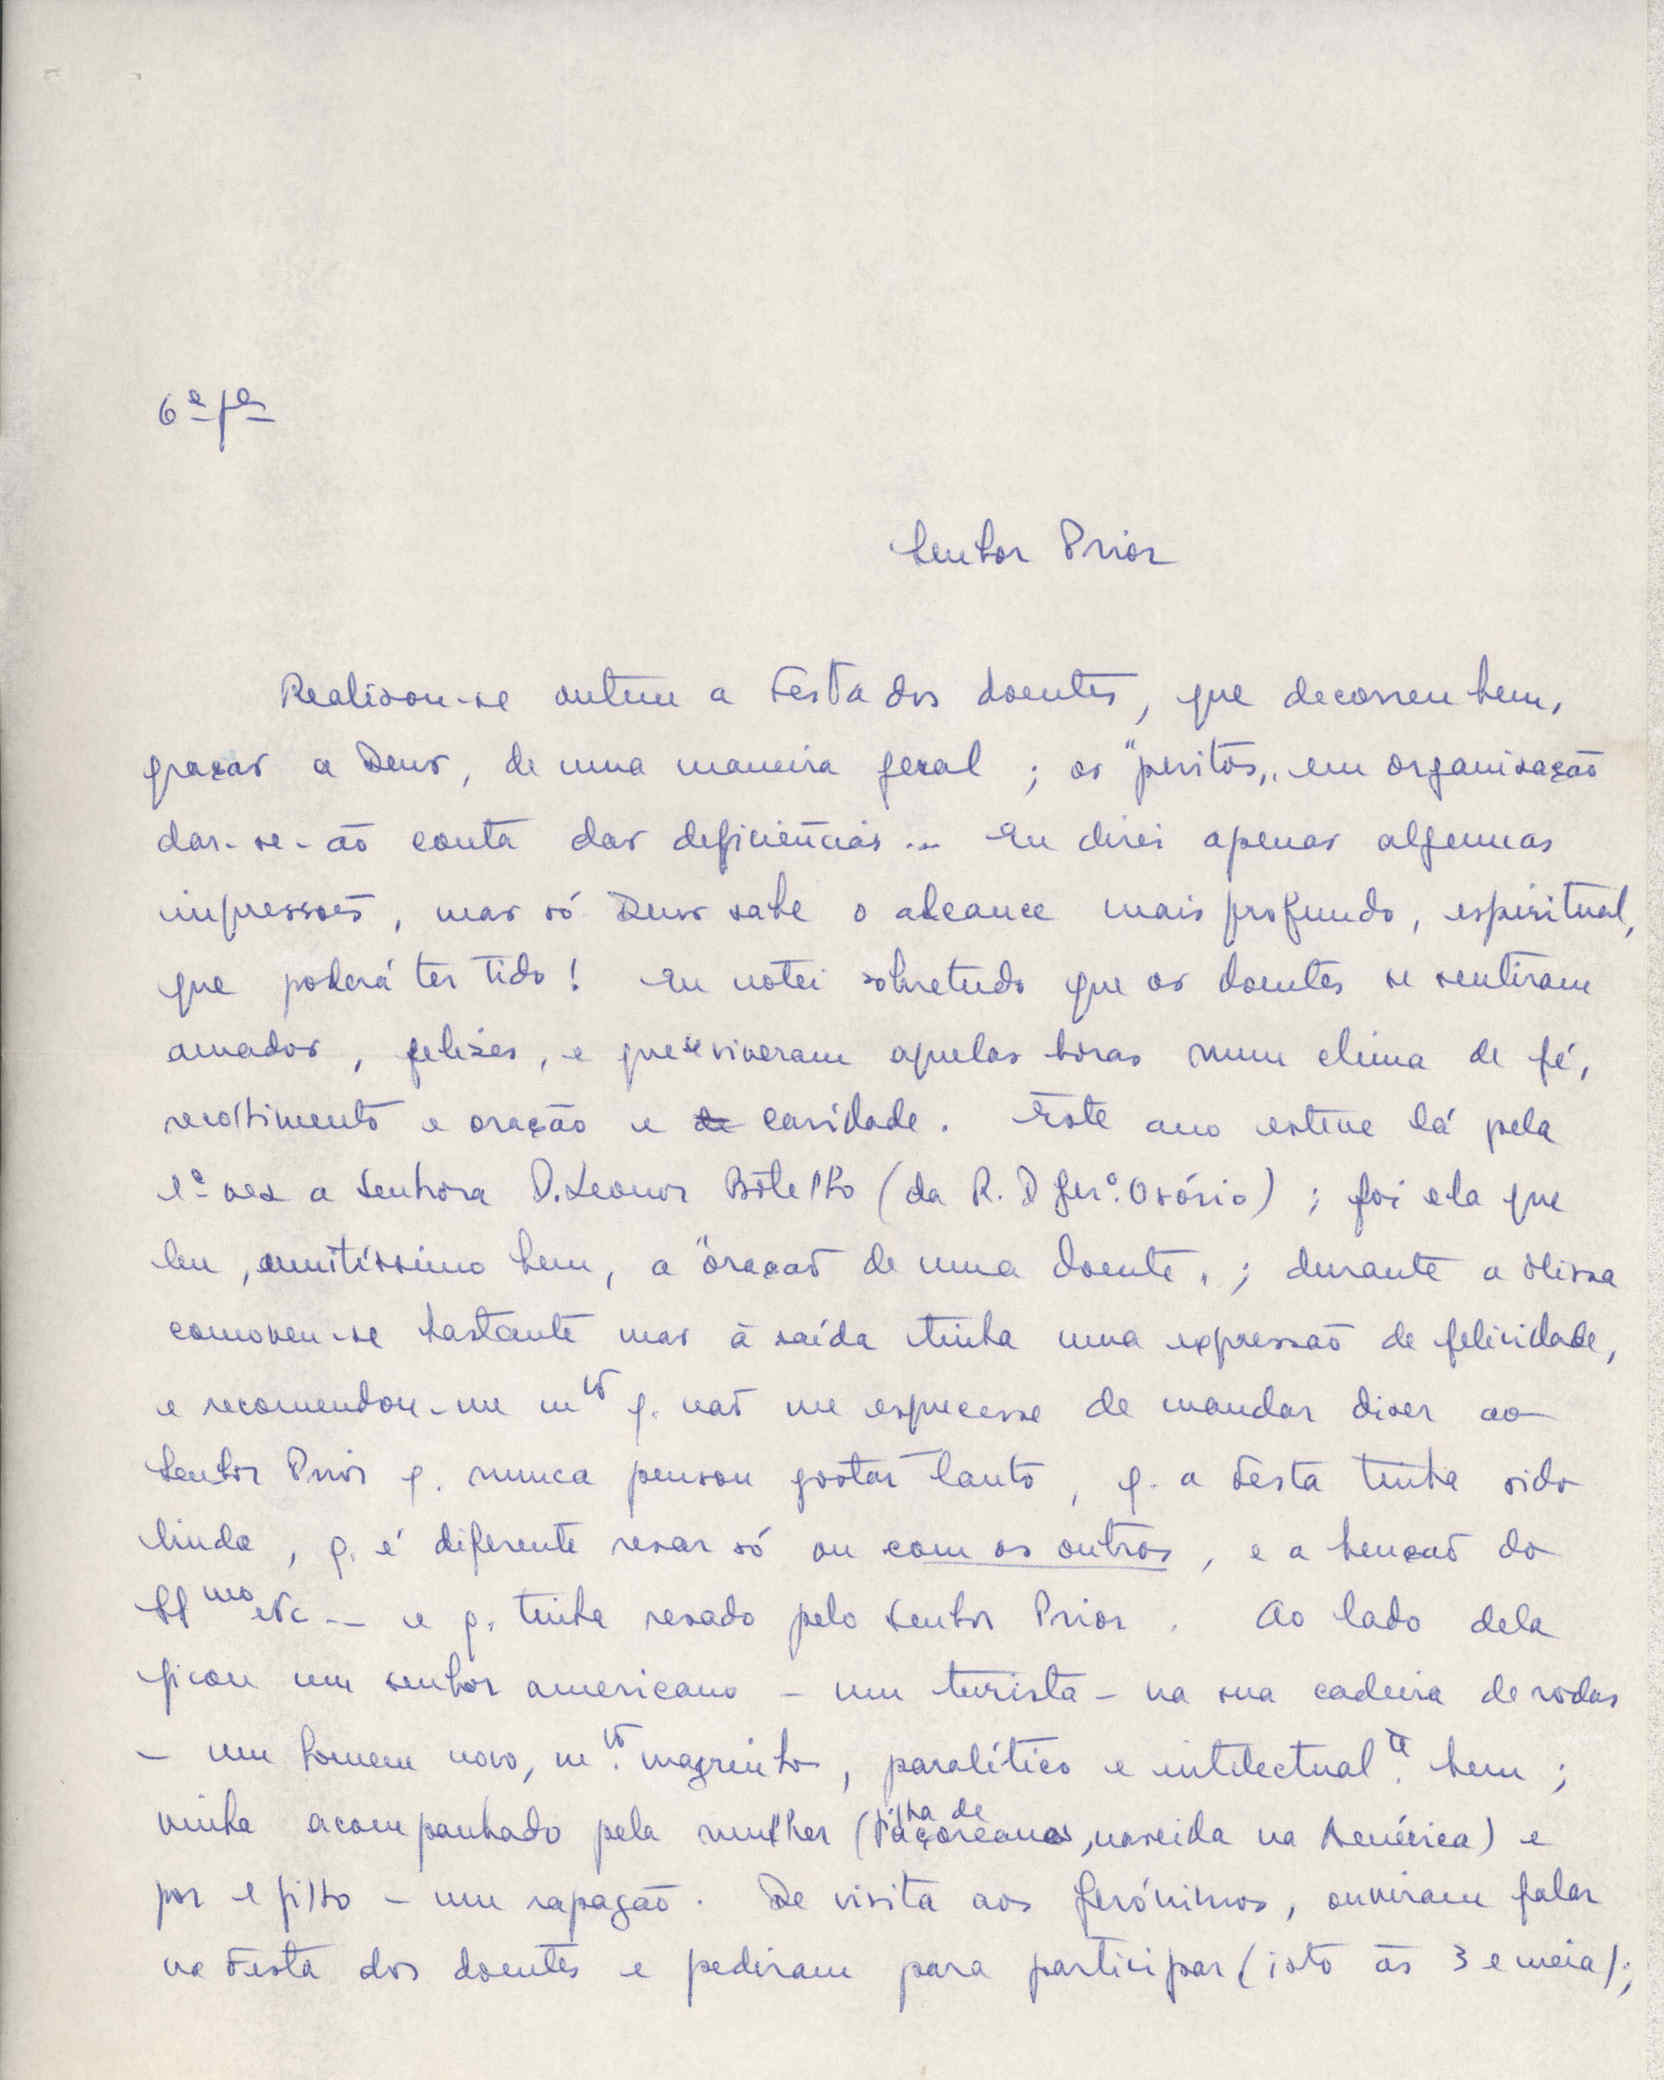 6ª fª
Senhor Prior
Realizou-se ontem a Festa dos doentes, que decorreu bem,
graças a Deus, de uma maneira geral ; os "peritos" em organização
dar-se-ão conta das deficiências ... Eu direi apenas algumas
impressões, mas só Deus sabe o alcance mais profundo, espiritual,
que poderá ter tido! Eu notei sobretudo que os doentes se sentiram
amados, felizes, e que se viveram aquelas horas num clima de fé,
recolhimento e oração e de caridade. Este ano esteve lá pela
1ª vez a Senhora D. Leonor Botelho (da R. D Jerº. Osório) ; foi ela que
leu, muitíssimo bem, a "oração de uma doente" ; durante a Missa
comoveu-se bastante mas à saída tinha uma expressão de felicidade,
e recomendou-me mto q. não me esquecesse de mandar dizer ao
Senhor Prior q. nunca pensou gostar tanto, q. a Festa tinha sido
linda, q. é diferente rezar só ou com os outros, e a benção do
SSmo etc -- e q. tinha rezado pelo Senhor Prior. Ao lado dela
ficou um senhor americano - um turista - na sua cadeira de rodas
- um homem novo, mto. magrinho, paralítico e intelectualte. bem ;
vinha acompanhado pela mulher (filha de açoreanos, nascida na América) e
por 1 filho - um rapagão. De visita aos Jerónimos, ouviram falar
na Festa dos doentes e pediram para participar (isto às 3 e meia);